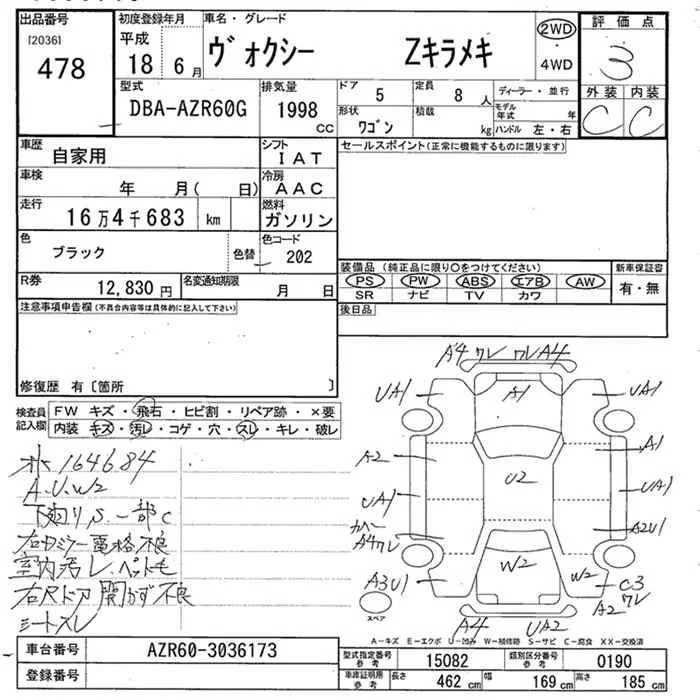 出品番号 初度登録年月 車名・グレード 評価点
[2036] 平成 ヴォクシー Zキラメキ 2WD 3
478 18 6月 4WD
外装 内装
C C
型式 排気量 ドア 5 定員 8 人 ディーラー・並行
DBA-AZR60G 1998 CC 形状 ワゴン 積載 kg モデル年式 年
ハンドル 左・右
車歴 自家用 シフト IAT セールスポイント(正常に機能するものに限ります)
車検 年 月( 日) 冷房 AAC
走行 16万4千683 km 燃料 ガソリン
色 ブラック 色替 色コード 202
装備品 (純正品に限り○をつけてください) 新車保証書
R券 12,830円 名変通知期限 月 日 PS PW ABS エアB AW 有・無
SR ナビ TV カワ
注意事項申告欄(不具合内容等は具体的に記入して下さい) 後日品
修復歴 有〔箇所 〕
検査員記入欄 FW キズ・飛石・ヒビ割・リペア跡・×要
内装 キズ・汚レ・コゲ・穴・スレ・キレ・破レ
164684
A.U.W2
下廻りS.一部C
右ミラー電格不良
室内汚レ.ペット毛
右Rドア開かず不良
シートスレ
A4 ワレ ワレ A4
UA1 A1 UA1
A2 A1
U2
UA1 UA1
カバー A2U1
A4ワレ
W2 W2
A3U1 C3
ワレ
A2
スペア
A4 UA2
A-キズ E-エクボ U-凹み W-補修跡 S-サビ C-腐食 XX-交換済
車台番号 AZR60-3036173
登録番号
型式指定番号 参考 15082 類別区分番号 参考 0190
車庫証明用 参考 長さ 462 cm 幅 169 cm 高さ 185 cm